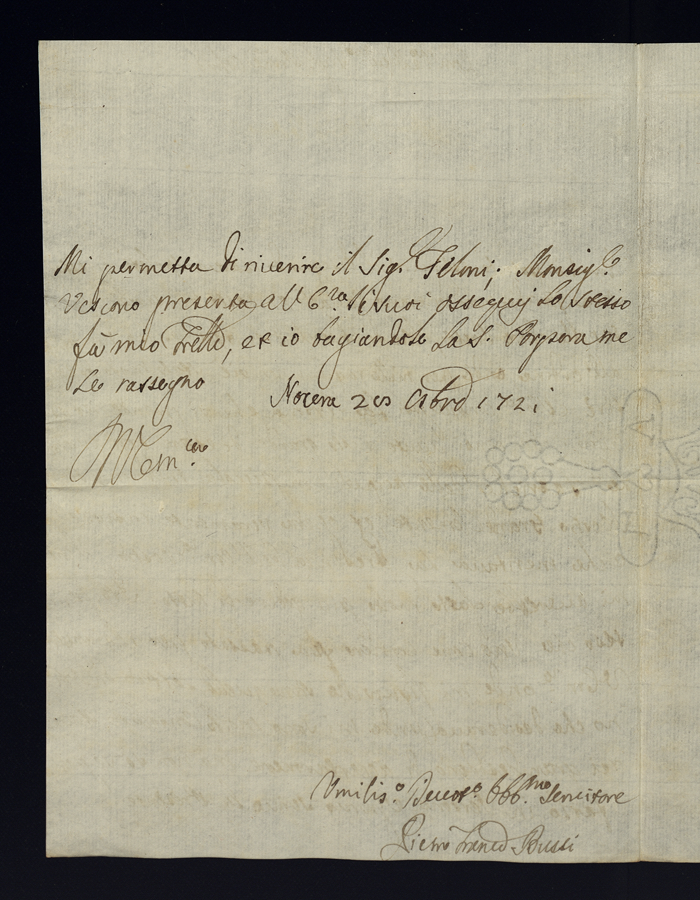 Mi permetta di riverire il Sig.r Feloni; Monsig.r
Vescovo presenta all' E.za V. i suoi ossequj lo stesso
fà mio Frello, et io bagiandole la S. Porpora me
Le rassegno Nocera 20 8bre 1721
Em.mo
Umilis.o Devot.o Obb.mo Servitore
Pietro Franc.o Bussi